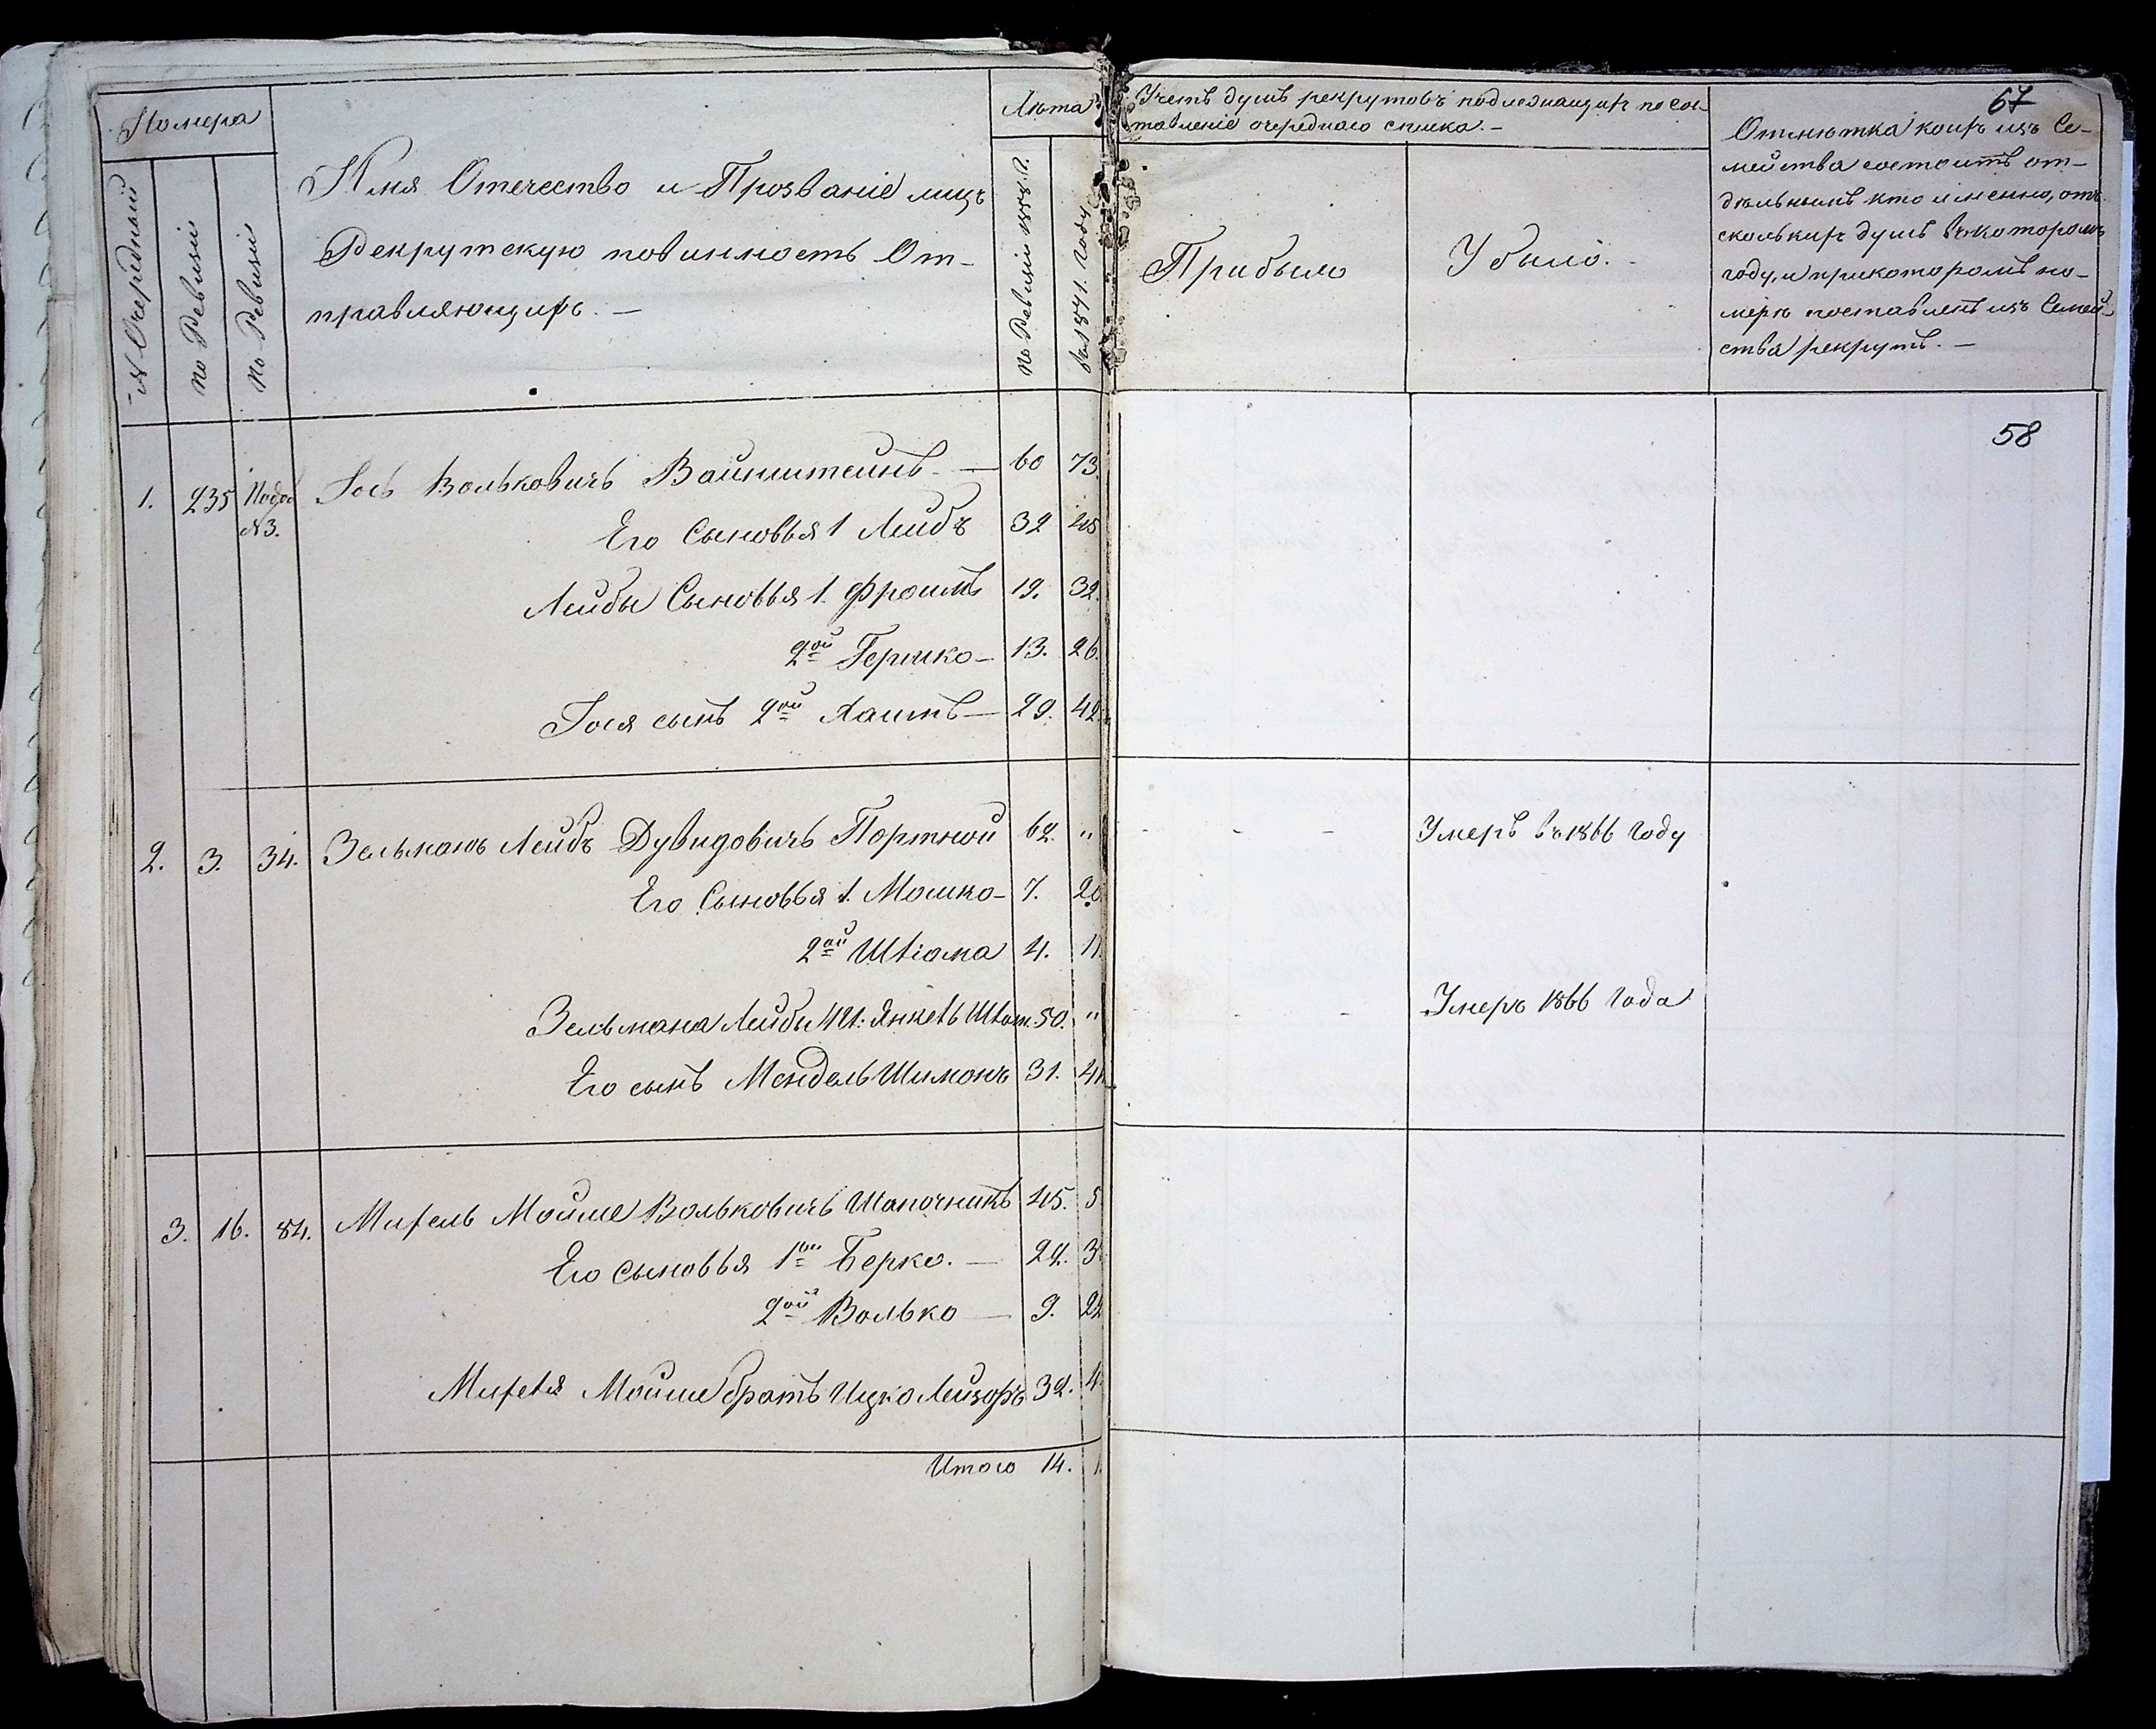 Номера
№ Очередный
по Ревизіи
по Ревизіи
Имя Отчество и Прозваніе лицъ
Рекрутскую повинность От-
правляющихъ. —
Лѣта
по Ревизіи 1858. г.
въ 1871. году
1. 235 №3. Іось Вольковичъ Вайнштейнъ. — 60 73.
Его Сыновья 1 Лейбъ 32 45
Лейбы Сыновья 1. Фроимъ 19. 32.
2ой Гершко — 13. 26.
Іося сынъ 2ой Хаимъ — 29. 42.
2. 3. 34. Зельманъ Лейбъ Дувидовичъ Портной 62. "
Его Сыновья 1. Мошко — 7. 20
2ой Шліома 4.
Зельмана Лейбы Янкель 50. "
Его сынъ Мендель Шимонъ 31.
3. 16. 84. Михель Мойше Вольковичъ Шапочникъ 45. 5
Его Сыновья 1ый Берко. — 22. 3
2ой Волько — 9. 22
Михеля Мойше братъ Ицко Лейзоръ 32. 4
Итого 14. 1
67
Учетъ душъ рекрутовъ подлежащихъ по сос-
тавленіе очереднаго списка. —
Прибыло
Убыло. -
Отмѣтка коихъ изъ Се-
мейства состоитъ от-
дѣльнымъ кто именно, отъ
сколькихъ душъ въ которомъ
году, и при которомъ но-
мерѣ поставленъ изъ Семей-
ства рекрутъ. —
58
- - - Умеръ въ 1866 году
- - Умеръ 1866 Года